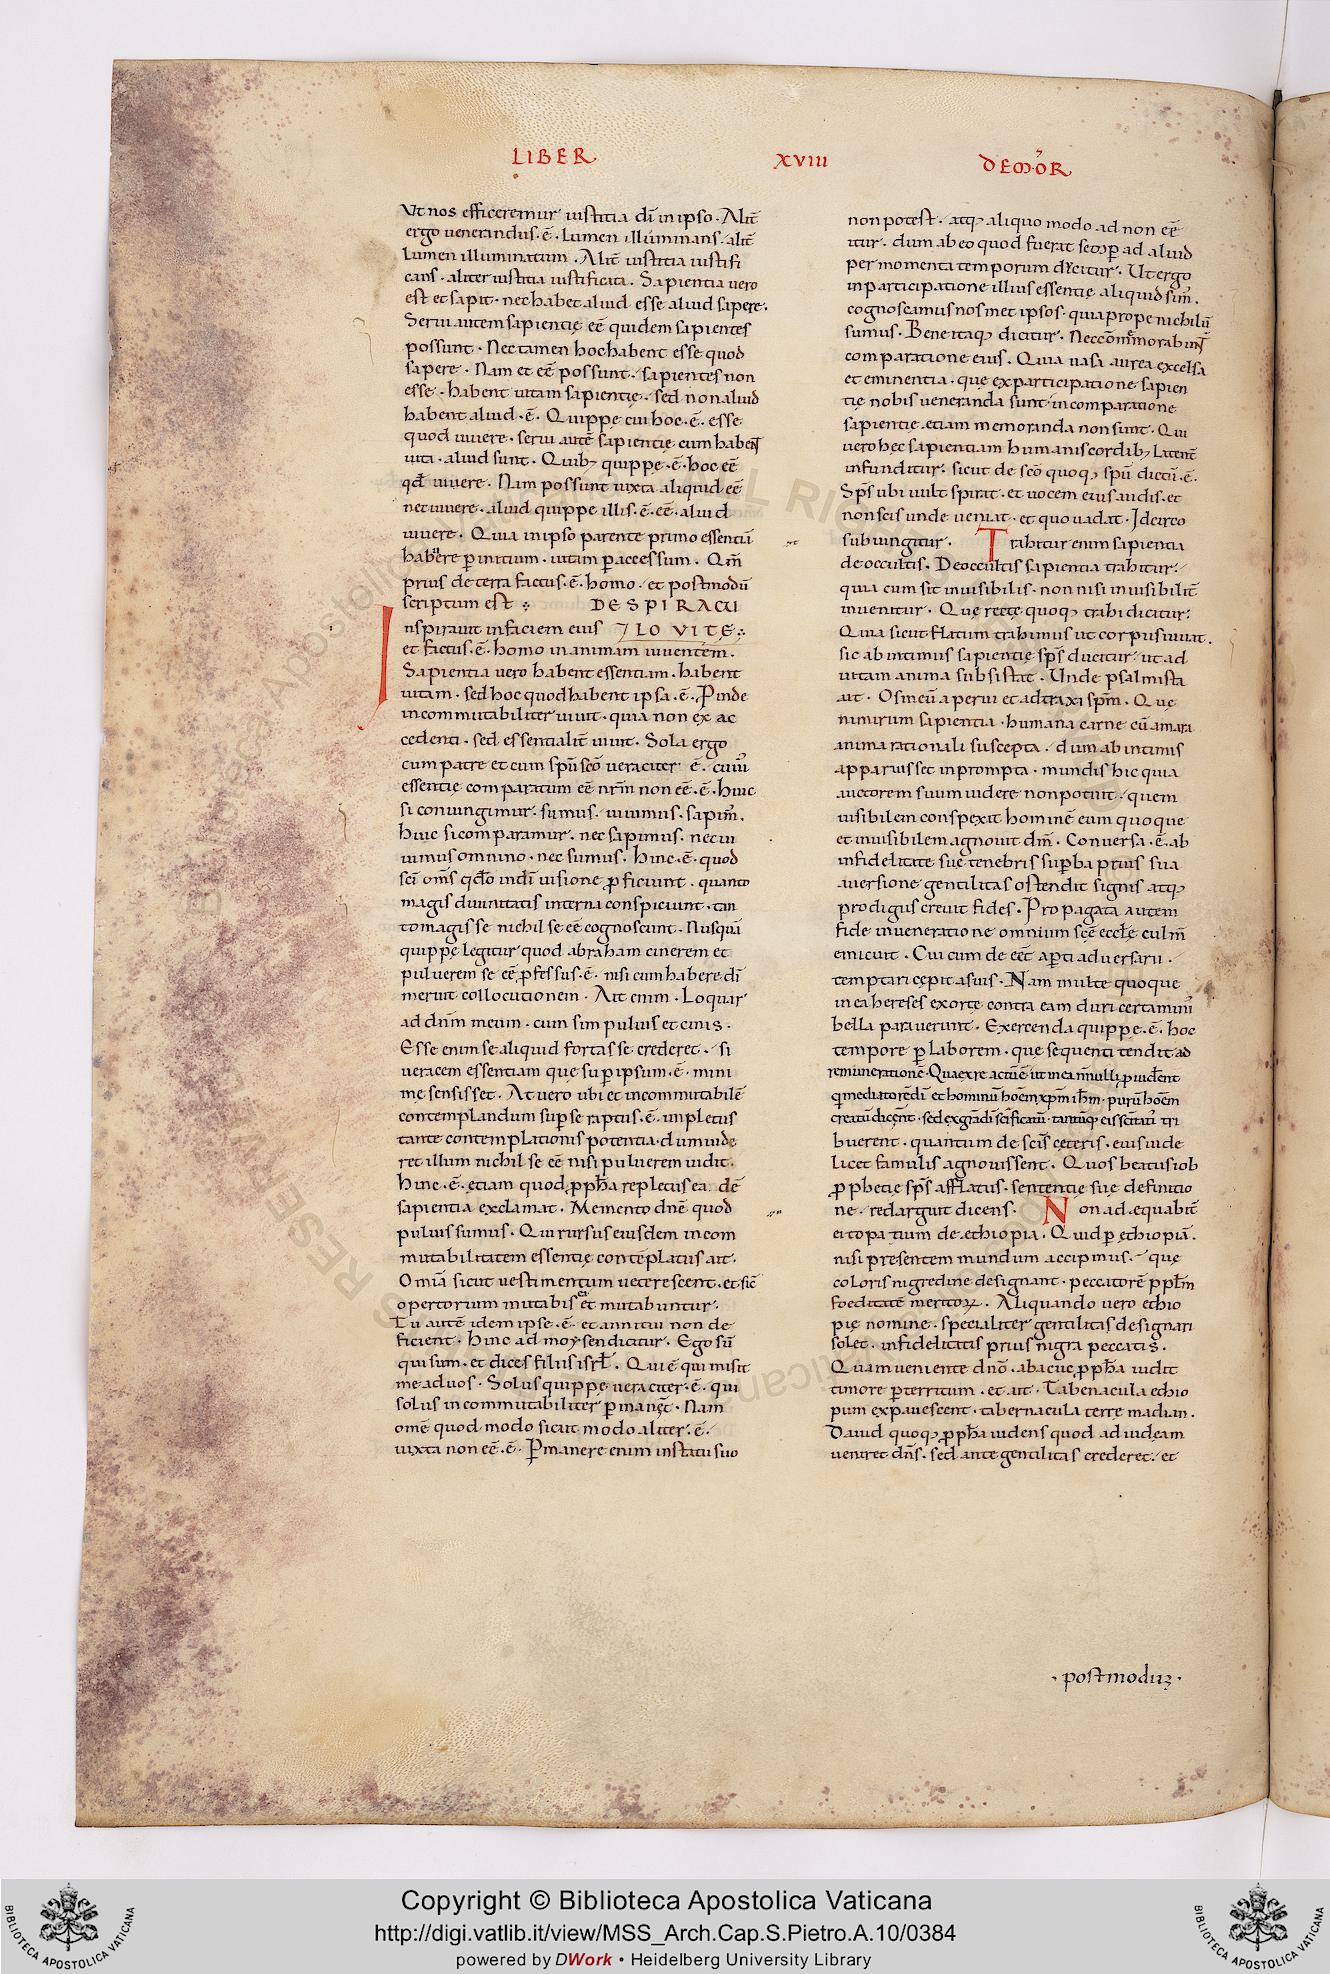 LIBER XVIII DEMOR̄
Vt nos efficeremur iustitia dī in ipso. Alit̄
ergo uenerandus. ē. Lumen illuminans. alit̄
Lumen illuminatum. Alit̄ iustitia iustifi
cans. aliter iustitia iustificata. Sapientia uero
est et sapit. nec habet aliud esse aliud sapere.
Serui autem sapientię eē quidem sapientes
possunt. Nec tamen hoc habent esse quod
sapere. Nam et eē possunt. sapientes non
esse. habent uitam sapientię. sed non aliud
habent aliud. ē. Quippe cui hoc. ē. esse
quod uiuere. serui autē sapientię cum habent
uita. aliud sunt. Quib; quippe. ē. hoc eē
qd̄ uiuere. Nam possunt iuxta aliquid eē
nec uiuere. aliud quippe illis. ē. eē. aliud
uiuere. Quia in ipso parente primo essentiā
habuere p̲ initium. uitam p̲ accessum. Qm̄
prius de terra factus. ē. homo. et postmodū
scriptum est: DE SPIRACU
Inspirauit in faciem eius LO VITĘ:
et factus. ē. homo in animam uiuentem.
Sapientia uero habent essentiam. habent
uitam. sed hoc quod habent ipsa. ē. Pinde
incommutabiliter uiuit. quia non ex ac
cedenti. sed essentialit̄ uiuit. Sola ergo
cum patre et cum spū scō ueraciter ē. cuiui
essentię comparatum eē nrm̄ non eē. ē. huic
si coniungimur. sumus. uiuimus. sapim̄.
Huic si comparamur. nec sapimus. nec ui
uimus omnino. nec sumus. Hinc. ē. quod
scī om̄s qd̄o in dī uisione p̲ficiunt. quanto
magis diuinitatis interna conspiciunt. tan
to magis se nichil se eē cognoscunt. Nusquā
quippe legitur quod abraham cinerem et
puluerem se eē p̲fessus. ē. nisi cum habere dī
meruit collocutionem. Ait enim. Loquar
ad dn̄m meum. cum sim puluis et cinis.
Esse enim se aliquid fortasse crederet. si
ueracem essentiam que sup̲ ipsum. ē. mini
me sensisset. At uero ubi et incommutabilē
contemplandum sup̲ se raptus. ē. impletus
tante contemplationis potentia. dum uide
ret illum nichil se eē nisi puluerem uidit.
Hinc. ē. etiam quod p̲ph̄a repletus ea dē
sapientia exclamat. Memento dn̄e quod
puluis sumus. Qui rursus eiusdem incom
mutabilitatem essentię contēplatus ait.
Omīa sicut uestimentum ueterescent. et sic̄
opertorium mutabis et mutabuntur.
Tu autē idem ipse. ē. et anni tui non de
ficient. Hinc ad moysen dicitur. Ego sū
qui sum. et dices filiis isrl̄. Qui ē qui misit
me ad uos. Solus quippe ueraciter. ē. qui
solus incommutabiliter p̲manet. Nam
omē quod modo sicut modo aliter. ē.
iuxta non eē. ē. P̲manere enim in statu suo
non potest. atq; aliquo modo ad non eē
itur. dum ab eo quod fuerat semp̲ ad aliud
per momenta temporum ducitur. Ut ergo
in participatione illius essentię aliquid sim̄.
cognoscamus nosmet ipsos. quia prope nichilū
sumus. Bene itaq; dicitur. Nec cōm̄morabunt̄
comparatione eius. Quia uasa aurea excelsa
et eminentia. que ex participatione sapien
tię nobis ueneranda sunt. in comparatione
sapientię. etiam memoranda non sunt. Qui
uero hec sapientiam humanis cordib; Latent̄
infunditur. sicut de scō quoq; spū dictū. ē.
Sp̄s ubi uult spirat. et uocem eius audis. et
non scis unde ueniat. et quo uadat. Idcirco
subiungitur. Trahitur enim sapientia
de occultis. De occultis sapientia trahitur.
quia cum sit inuisibilis. non nisi inuisibilit̄
inuenitur. Que recte quoq; trahi dicitur.
Quia sicut flatum trahimus ut corpus uiuat.
sic ab intimus sapientię sp̄s ducitur. ut ad
uitam anima subsistat. Unde psalmista
ait. Os meū aperui et adtraxi sp̄m. Que
nimirum sapientia. humana carne cū amara
anima rationali suscepta. dum ab intimis
apparuisset in prompta. mundis hic quia
auctorem suum uidere non potuit. quem
uisibilem conspexit hominē eum quoque
et inuisibilem agnouit dm̄. Conuersa. ē. ab
infidelitate sue tenebris sup̲ba prius sua
auersione gentilitas ostendit signis atq;
prodigiis creuit fides. Propagata autem
fide in ueneratione omnium scē eccl̄ę culm̄
emicuit. Cui cum de eēt ap̲ti aduersarii.
temptari cępit a suis. Nam multe quoque
in ea hereses exorte contra eam duri certaminī
bella parauerunt. Exercenda quippe. ē. hoc
tempore p̲ Laborem. que sequenti tendit ad
remunerationē. Qua ex re actū ē ut in ea nn̄ulli p̲uidēnt
q̄ mediatorē dī et hominū hoīem xp̄m ih̄m. purū hoīem
creatū dicēnt. sed ex gr̄a dī sc̄ificatū. tantūq; ei sc̄itatī tri
buerent. quantum de scīs ceteris. eius uide
licet famulis agnouissent. Quos beatus iob
p̲phetię sp̄s afflatus. sententię suę definitio
ne. redarguit dicens. Non adequabit̄
ei topatium de ethiopia. Quid p̲ ęthiopiā.
nisi presentem mundum accipimus. que
coloris nigredine designant. peccatorē pp̄lm̄
foeditatē meritoꝝ. Aliquando uero ethio
pię nomine. specialiter gentilitas designari
solet. infidelitatis prius nigra peccatis.
Quam ueniente dn̄o. abacuc p̲ph̄a uidit
timore p̲territum. et ait. Tabenacula ethio
pum expauescent. tabernacula terre madian.
Dauid quoq; p̲ph̄a uidens quod ad iudeam
ueniret dn̄s. sed ante gentilitas crederet. et
. postmoduꝫ .
Copyright © Biblioteca Apostolica Vaticana
http://digi.vatlib.it/view/MSS_Arch.Cap.S.Pietro.A.10/0384
powered by DWork • Heidelberg University Library
BIBLIOTECA APOSTOLICA VATICANA
BIBLIOTECA APOSTOLICA VATICANA